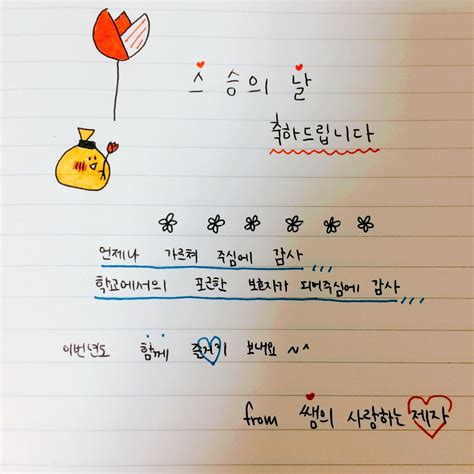 스승의 날
축하드립니다
언제나 가르쳐 주심에 감사
학교에서의 포근한 보호자가 되어주심에 감사
이번년도 함께 즐거이 보내요 ~^
from 쌤의 사랑하는 제자